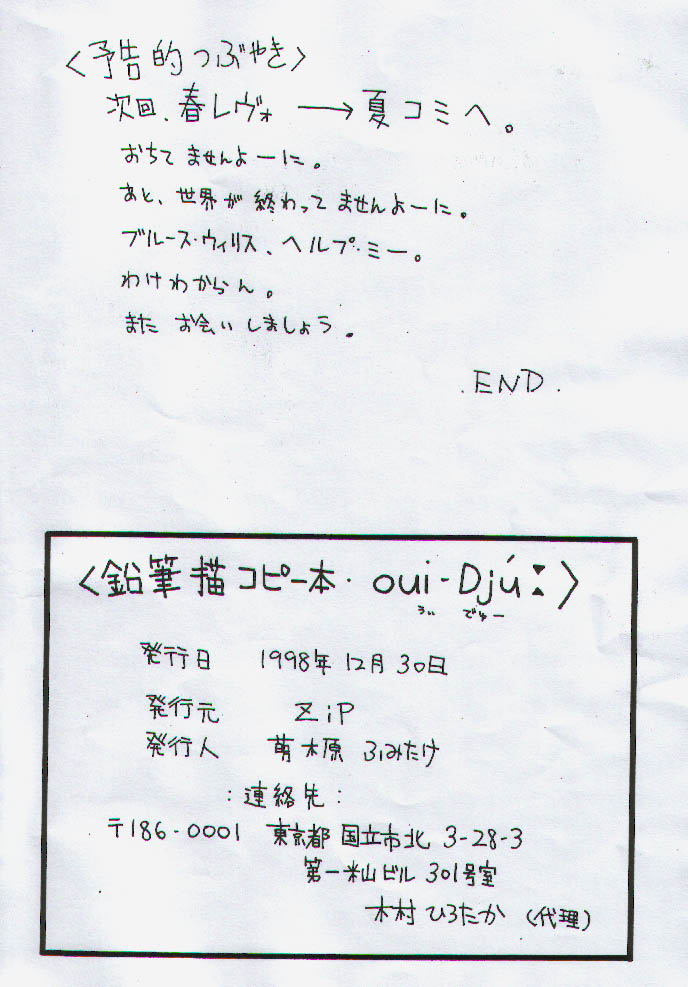 〈予告的つぶやき〉
次回、春レヴォ → 夏コミへ。
おちてませんよーに。
あと、世界が終わってませんよーに。
ブルース・ウィリス、ヘルプ・ミー。
わけわからん。
またお会いしましょう。
.END.
〈鉛筆描コピー本・oui-Djú:〉
うぃ でゅー
発行日 1998年12月30日
発行元 ZiP
発行人 萌木原 ふみたけ
:連絡先:
〒186-0001 東京都国立市北 3-28-3
第一米山ビル 301号室
木村ひろたか (代理)